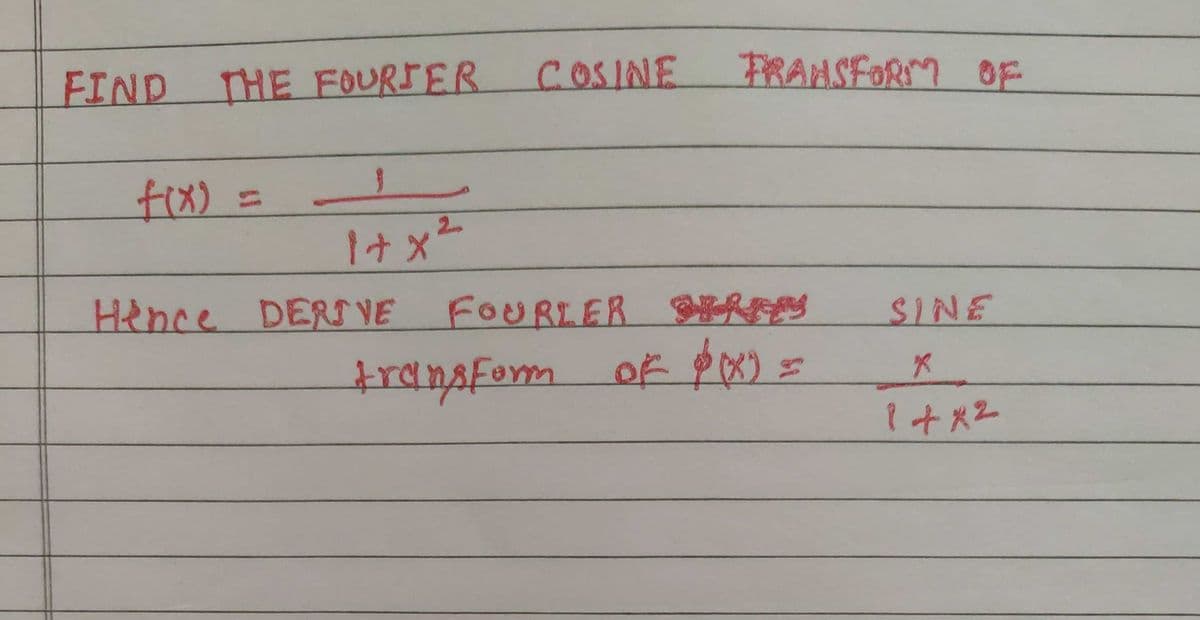 FIND THE FOURIER COSINE TRANSFORM OF
f(x) = 1
1 + x²
Hence DERIVE FOURIER SINE
transform of ϕ(x) = x
1 + x²